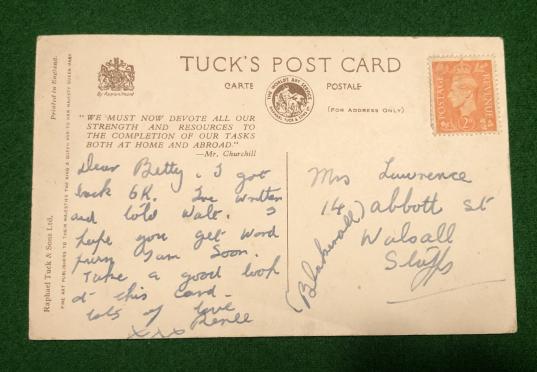 TUCK'S POST CARD
CARTE POSTALE
(FOR ADDRESS ONLY)
By Appointment
"WE MUST NOW DEVOTE ALL OUR
STRENGTH AND RESOURCES TO
THE COMPLETION OF OUR TASKS
BOTH AT HOME AND ABROAD."
—Mr. Churchill
Dear Betty. I got
back OK. Ive written
and told Walt. I
hope you get word
from Sam Soon.
Take a good look
at this card -
lots of love
Renee
xxx
Mrs Lawrence
14 abbott St
(Blakenall)
Walsall
Staffs
POSTAGE
REVENUE
2D
THE WORLD'S ART SERVICE
RAPHAEL TUCK & SONS LTD
Raphael Tuck & Sons Ltd.
FINE ART PUBLISHERS TO THEIR MAJESTIES THE KING & QUEEN AND TO HER MAJESTY QUEEN MARY
Printed in England.